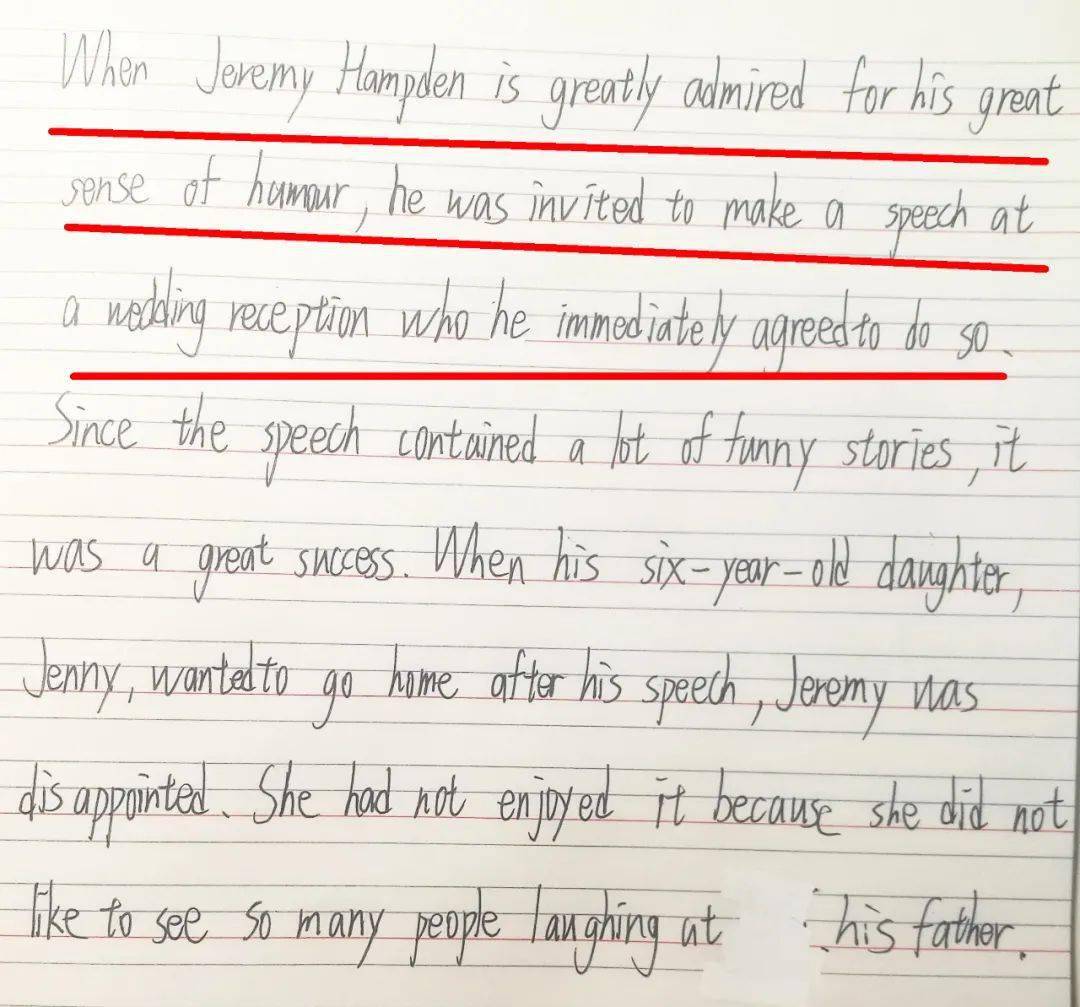 When Jeremy Hampden is greatly admired for his great
sense of humour, he was invited to make a speech at
a wedding reception who he immediately agreed to do so.
Since the speech contained a lot of funny stories, it
was a great success. When his six-year-old daughter,
Jenny, wanted to go home after his speech, Jeremy was
disappointed. She had not enjoyed it because she did not
like to see so many people laughing at his father.